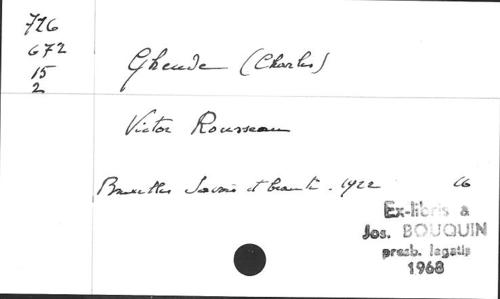 726
672
15
2
Gheude (Charles)
Victor Rousseau
Bruxelles Savoir et beauté. 1922 16
Ex-libris a
Jos. BOUQUIN
presb. legatis
1968